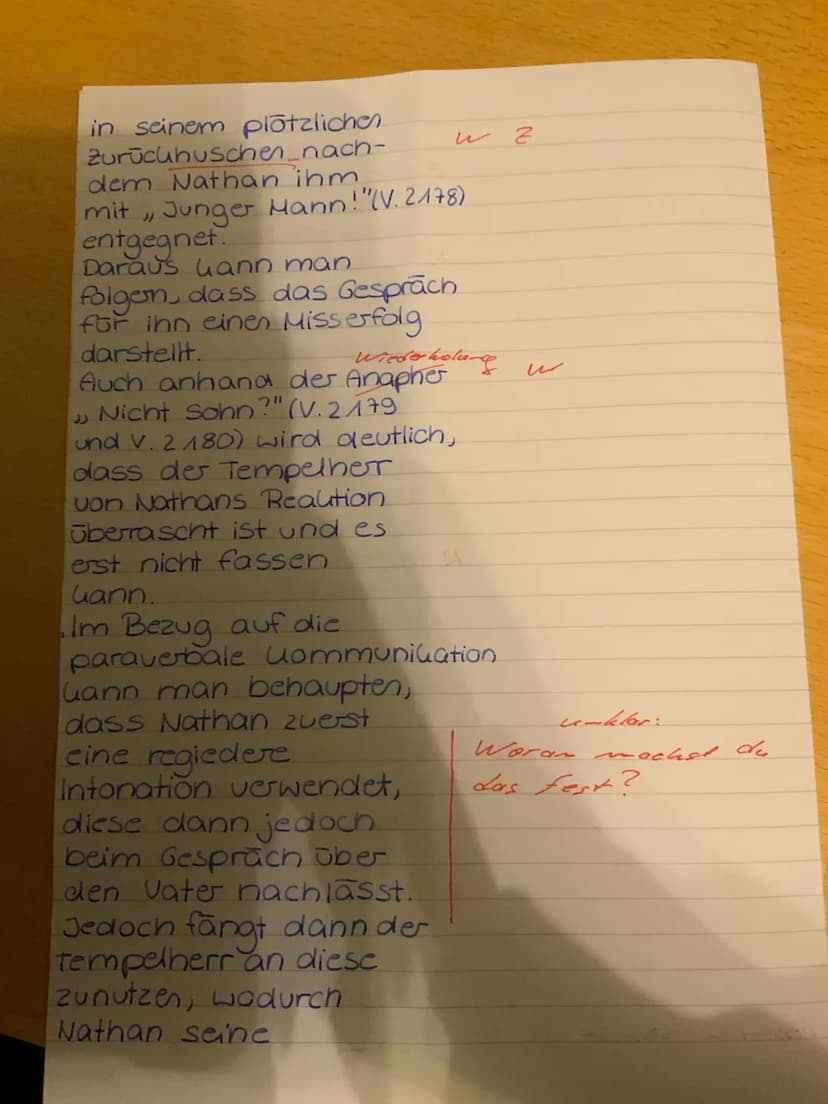 in seinem plötzlichen
zurückhuschen nach- W Z
dem Nathan ihm
mit „Junger Mann!"(V. 2178)
entgegnet.
Daraus kann man
folgern, dass das Gespräch
für ihn einen Misserfolg
darstellt.
Wiederholung
Auch anhand der Anapher W
„Nicht Sohn?"(V. 2179
und V. 2180) wird deutlich,
dass der Tempelherr
von Nathans Reaktion
überrascht ist und es
erst nicht fassen
kann.
Im Bezug auf die
paraverbale Kommunikation
kann man behaupten,
dass Nathan zuerst
unklar:
eine regiedere
Woran machst du
Intonation verwendet,
das fest?
diese dann jedoch
beim Gespräch über
den Vater nachlässt.
Jedoch fängt dann der
Tempelherr an diese
zunutzen, wodurch
Nathan seine